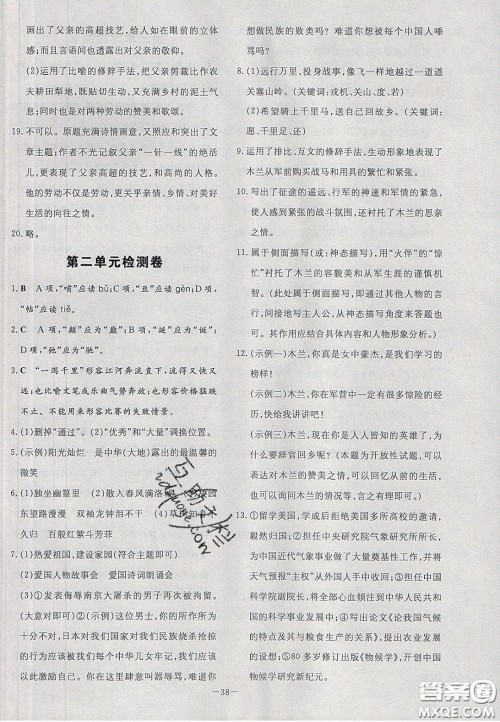 画出了父亲的高超技艺，具有很强的立体感；
而且言语间也透露出对父亲的敬仰。
(2)运用了比喻的修辞手法，把父亲剪裁比作农
夫耕田犁地，既贴切生动，又充满乡村的泥土气
息；同时也是对两种劳动的赞美和歌颂。
19.不可以。原题充满诗情画意，又照应了文
章主题；作者不光记叙父亲“一针一线”的绝活
儿，更表现了父亲高超的技艺和高尚的人格。
他的劳动不仅是养家糊口，更会产生对美好生
活的向往之情。
20.略。
第二单元检测卷
1. B A项，“哺”应读 bǔ；C项，“亘”应读 gèn；D项，
“帖”应读 tiě。
2. C A项，“颠”应为“巅”；B项，“涎”应为“诞”；D
项，“弛”应为“驰”。
3. C “一泻千里”形容江河奔流直下，流得又快又
远。也比喻文笔或乐曲气势奔放。也形容价格猛跌
不止。不能用来形容比赛的失败情景。
4.(1)删掉“通过”。(2)“优秀”和“大量”调换位置。
5.(示例)阳光灿烂 是中华(大地)露出的最温馨的
微笑
6.(1)独坐幽篁里 (2)散入春风满洛城
东路漫漫 双袖龙钟泪不干
久归 百般红紫斗芳菲
7.(1)热爱祖国，建设家园(符合主题即可)
(2)爱国人物故事会 爱国诗词朗诵会
(3)发表侮辱南京大屠杀的男子再次被拘留。
(大意对即可) (4)(示例)这位男士，你的所作所为
十分不对，日本对我们国家对我们民族烧杀抢掠
的行为我们每个中华儿女牢记，我们应该以此
以此激励自己。你在这里肆意叫嚣辱骂，难道你
想做民族的败类吗？难道你想被每个中国人唾
骂吗？
8.(1)远行万里，投身战事，像飞一样地越过一道道
关塞山岭。(关键词：戎机、关山、度、若)
(2)希望骑上千里马，送我回故乡。(关键词：
愿、千里足)
9.运用了排比、互文的修辞手法，生动形象地表现了
木兰从军前购买战马和用具的忙碌和紧张。
10.写出了征途的遥远，行军的神速和军情的紧急，
使人感到紧张的战斗氛围，生动表现了木兰的
飒爽英姿。
11.属于侧面描写(或：神态描写)，用“火伴”的“惊
忙”衬托了木兰的容貌美和从军生涯的谨慎机
智。(此处属于侧面描写，通过描写其他人物的言
行，来丰富、突出主人公的形象。分析侧面描写及
其作用应结合具体内容和人物形象分析。)
12.(示例一)木兰，你真是女中豪杰，是我们学习的
榜样！
(示例二)木兰，你在军营中一定有很多惊险的经
历，快给我们讲讲吧！
(示例三)木兰，你现在是人人皆知的英雄了，为
什么要辞官回乡呢？(本题为开放性试题，可以
表达对木兰的赞美之情，可以表达对木兰的关切
之情，也可以表达对木兰的疑问。)
13.①留学美国，谢绝了美国多所高校的邀请，毅然
归国；②出任中央研究院气象研究所所长，为中国
近代气象事业做了大量奠基性工作，并将
天气预报“主权”从外国人手中收回；③担任中国
科学院副院长，将全部心血倾注到中华民族
的科学事业中；④写出论文《论我国气候
的特点及其与粮食生产的关系》，为国家的农业
决策作出贡献；⑤80多岁修订出版《物候学》，开创
物候学研究新纪元。
—38—
答案圈
MXQE.COM